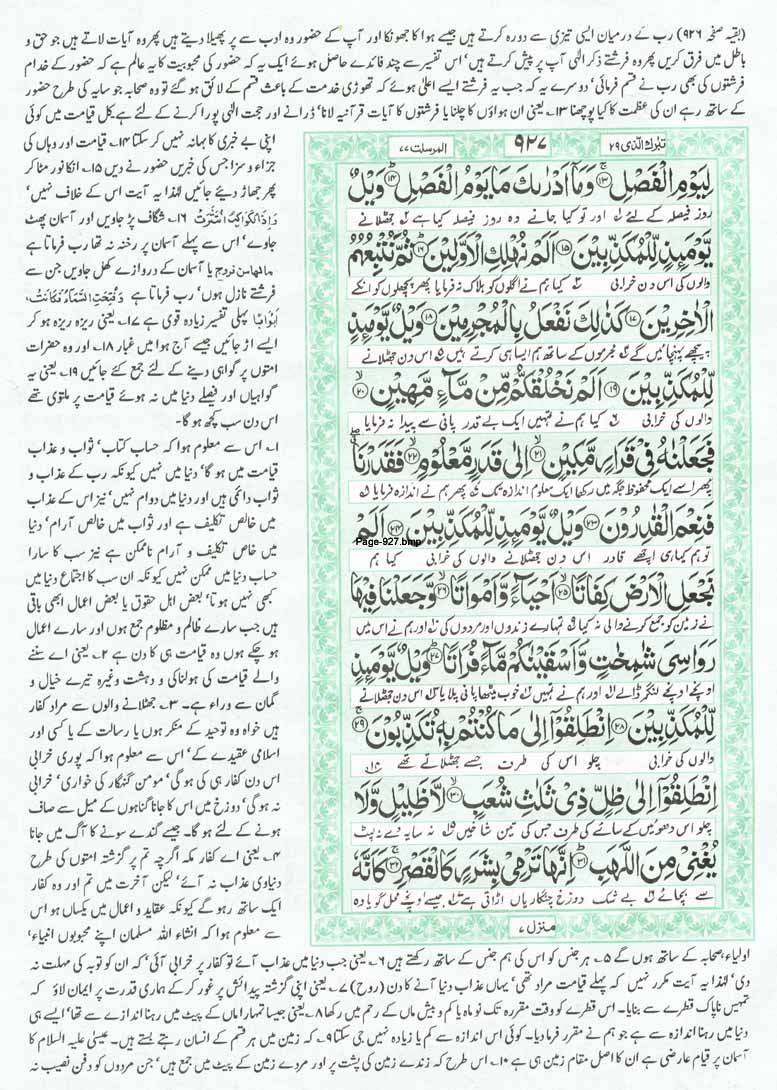 (بقیہ صفحہ ۹۲۶) رب کے درمیان ایسی تیزی سے دورہ کرتے ہیں جیسے ہوا کا جھونکا اور آپ کے حضور وہ ادب سے پر پھیلا دیتے ہیں پھر وہ آیات لاتے ہیں جو حق و
باطل میں فرق کریں پھر وہ فرشتے ذکر الٰہی آپ پر پیش کرتے ہیں' اس تفسیر سے چند فائدے حاصل ہوئے ایک یہ کہ حضور کی محبوبیت کا یہ عالم ہے کہ حضور کے خدام
فرشتوں کی بھی رب نے قسم فرمائی' دوسرے یہ کہ جب یہ فرشتے ایسے اعلیٰ ہوئے کہ تھوڑی خدمت کے باعث قسم کے لائق ہو گئے تو وہ صحابہ جو سایہ کی طرح حضور
کے ساتھ رہے ان کی عظمت کا کیا پوچھنا ۱۳؂ یعنی ان ہواؤں کا چلنا یا فرشتوں کا آیات قرآنیہ لانا' ڈرانے اور حجت الٰہی پورا کرنے کے لئے ہے کل قیامت میں کوئی
اپنی بے خبری کا بہانہ نہیں کر سکتا ۱۴؂ قیامت اور وہاں کی
جزاء و سزا جس کی خبریں حضور نے دیں ۱۵؂ انکا نور مٹا کر
پھر جھاڑ دیئے جائیں لہٰذا یہ آیت اس کے خلاف نہیں'
وَإِذَا الْكَوَاكِبُ انْتَثَرَتْ ۱۶؂ شگاف پڑ جاویں اور آسمان پھٹ
جاوے' اس سے پہلے آسمان پر رخنہ نہ تھا رب فرماتا ہے
مالھا من فروج یا آسمان کے دروازے کھل جاویں جن سے
فرشتے نازل ہوں' رب فرماتا ہے وَفُتِحَتِ السَّمَاءُ فَكَانَتْ،
اَبْوَابًا پہلی تفسیر زیادہ قوی ہے ۱۷؂ یعنی ریزہ ریزہ ہو کر
ایسے اڑ جائیں جیسے آج ہوا میں غبار ۱۸؂ اور وہ حضرات
امتوں پر گواہی دینے کے لئے جمع کئے جائیں ۱۹؂ یعنی یہ
گواہیاں اور فیصلے دنیا میں نہ ہوئے قیامت پر ملتوی تھے
اس دن سب کچھ ہو گا۔
۱؂ اس سے معلوم ہوا کہ حساب کتاب' ثواب و عذاب
قیامت میں ہو گا' دنیا میں نہیں کیونکہ رب کے عذاب و
ثواب دائمی ہیں اور دنیا میں دوام نہیں' نیز اس کے عذاب
میں خالص تکلیف ہے اور ثواب میں خالص آرام' دنیا
میں خاص تکلیف و آرام ناممکن ہے نیز سب کا سارا
حساب دنیا میں ممکن نہیں کیونکہ ان سب کا اجتماع دنیا میں
کبھی نہیں ہوتا' بعض اہل حقوق یا بعض اعمال ابھی باقی
ہیں جب سارے ظالم و مظلوم جمع ہوں اور سارے اعمال
ہو چکے ہوں وہ قیامت ہی کا دن ہے ۲؂ یعنی اے سننے
والے قیامت کی ہولناکی و دہشت وغیرہ تیرے خیال و
گمان سے وراء ہے۔ ۳؂ جھٹلانے والوں سے مراد کفار
ہیں خواہ وہ توحید کے منکر ہوں یا رسالت کے یا کسی اور
اسلامی عقیدے کے' اس سے معلوم ہوا کہ پوری خرابی
اس دن کفار ہی کی ہو گی' مومن گنہگار کی خواری' خرابی
نہ ہو گی' دوزخ میں اس کا جانا گناہوں کے میل سے صاف
ہونے کے لئے ہو گا۔ جیسے گندے سونے کا آگ میں جانا
۴؂ یعنی اے کفار مکہ اگرچہ تم پر گزشتہ امتوں کی طرح
دنیاوی عذاب نہ آئے' لیکن آخرت میں تم اور وہ کفار
ایک ساتھ رہو گے کیونکہ عقاید و اعمال میں یکساں ہو اس
سے معلوم ہوا کہ انشاء اللہ مسلمان اپنے محبوبوں انبیاء'
تبٰرك الذی ۲۹ ۹۲۷ المرسلٰت ۷۷
لِيَوْمِ الْفَصْلِ ۝۱۳ وَمَآ اَدْرٰىكَ مَا يَوْمُ الْفَصْلِ ۝۱۴ وَيْلٌ
روز فیصلہ کے لئے اور تو کیا جانے وہ روز فیصلہ کیا ہے جھٹلانے
يَّوْمَىِٕذٍ لِّلْمُكَذِّبِيْنَ ۝۱۵ اَلَمْ نُهْلِكِ الْاَوَّلِيْنَ ۝۱۶ ثُمَّ نُتْبِعُهُمُ
والوں کی اس دن خرابی کیا ہم نے اگلوں کو ہلاک نہ فرمایا پھر پچھلوں کو انکے
الْاٰخِرِيْنَ ۝۱۷ كَذٰلِكَ نَفْعَلُ بِالْمُجْرِمِيْنَ ۝۱۸ وَيْلٌ يَّوْمَىِٕذٍ
پیچھے پہنچائیں گے مجرموں کے ساتھ ہم ایسا ہی کرتے ہیں اس دن جھٹلانے
لِّلْمُكَذِّبِيْنَ ۝۱۹ اَلَمْ نَخْلُقْكُّمْ مِّنْ مَّآءٍ مَّهِيْنٍ ۝۲۰
والوں کی خرابی کیا ہم نے تمہیں ایک بے قدر پانی سے پیدا نہ فرمایا
فَجَعَلْنٰهُ فِيْ قَرَارٍ مَّكِيْنٍ ۝۲۱ اِلٰى قَدَرٍ مَّعْلُوْمٍ ۝۲۲ فَقَدَرْنَا
پھر اسے ایک محفوظ جگہ میں رکھا ایک معلوم اندازہ تک پھر ہم نے اندازہ فرمایا
فَنِعْمَ الْقٰدِرُوْنَ ۝۲۳ وَيْلٌ يَّوْمَىِٕذٍ لِّلْمُكَذِّبِيْنَ ۝۲۴ اَلَمْ
Page-927.bmp
تو ہم کیا ہی اچھے قادر اس دن جھٹلانے والوں کی خرابی کیا ہم
نَجْعَلِ الْاَرْضَ كِفَاتًا ۝۲۵ اَحْيَآءً وَّاَمْوَاتًا ۝۲۶ وَّجَعَلْنَا فِيْهَا
نے زمین کو جمع کرنے والی نہ کیا تمہارے زندوں اور مردوں کی اور ہم نے اس میں
رَوَاسِيَ شٰمِخٰتٍ وَّاَسْقَيْنٰكُمْ مَّآءً فُرَاتًا ۝۲۷ وَيْلٌ يَّوْمَىِٕذٍ
اونچے اونچے لنگر ڈالے اور ہم نے تمہیں خوب میٹھا پانی پلایا اس دن جھٹلانے
لِّلْمُكَذِّبِيْنَ ۝۲۸ اِنْطَلِقُوْٓا اِلٰى مَا كُنْتُمْ بِهٖ تُكَذِّبُوْنَ ۝۲۹
والوں کی خرابی چلو اس کی طرف جسے جھٹلاتے تھے
اِنْطَلِقُوْٓا اِلٰى ظِلٍّ ذِيْ ثَلٰثِ شُعَبٍ ۝۳۰ لَّا ظَلِيْلٍ وَّلَا
چلو اس دھوئیں کے سائے کی طرف جس کی تین شاخیں نہ سایہ دے نہ لپٹ
يُغْنِيْ مِنَ اللَّهَبِ ۝۳۱ اِنَّهَا تَرْمِيْ بِشَرَرٍ كَالْقَصْرِ ۝۳۲ كَاَنَّهٗ
سے بچائے بے شک دوزخ چنگاریاں اڑاتی ہے جیسے اونچے محل گویا وہ
منزل ۷
اولیاء' صحابہ کے ساتھ ہوں گے ۵؂ ہر جنس کو اس کی ہم جنس کے ساتھ رکھتے ہیں ۶؂ یعنی جب دنیا میں عذاب آئے تو کفار پر خرابی آئی' کہ ان کو توبہ کی مہلت نہ
دی' لہٰذا یہ آیت مکرر نہیں کہ پہلے قیامت مراد تھی' یہاں عذاب دنیا آنے کا دن (روح) ۷؂ یعنی اپنی گزشتہ پیدائش پر غور کر کے ہماری قدرت پر ایمان لاؤ کہ
تمہیں ناپاک قطرے سے بنایا۔ اس قطرے کو وقت مقررہ تک نو ماہ یا کم و بیش ماں کے رحم میں رکھا ۸؂ یعنی جیسا تمہارا ماں کے پیٹ میں رہنا اندازے سے تھا' ایسے ہی
دنیا میں رہنا اندازہ سے ہے جو ہم نے مقرر فرما دیا۔ کوئی اس اندازہ سے کم یا زیادہ نہیں جی سکتا ۹؂ کہ زمین میں ہر قسم کے انسان رہتے بستے ہیں۔ عیسیٰ علیہ السلام کا
آسمان پر قیام عارضی ہے ان کا اصل مقام زمین ہی ہے ۱۰؂ اس طرح کہ زندے زمین کی پشت پر اور مردے زمین کے پیٹ میں جمع ہیں' جن مردوں کو دفن نصیب نہ